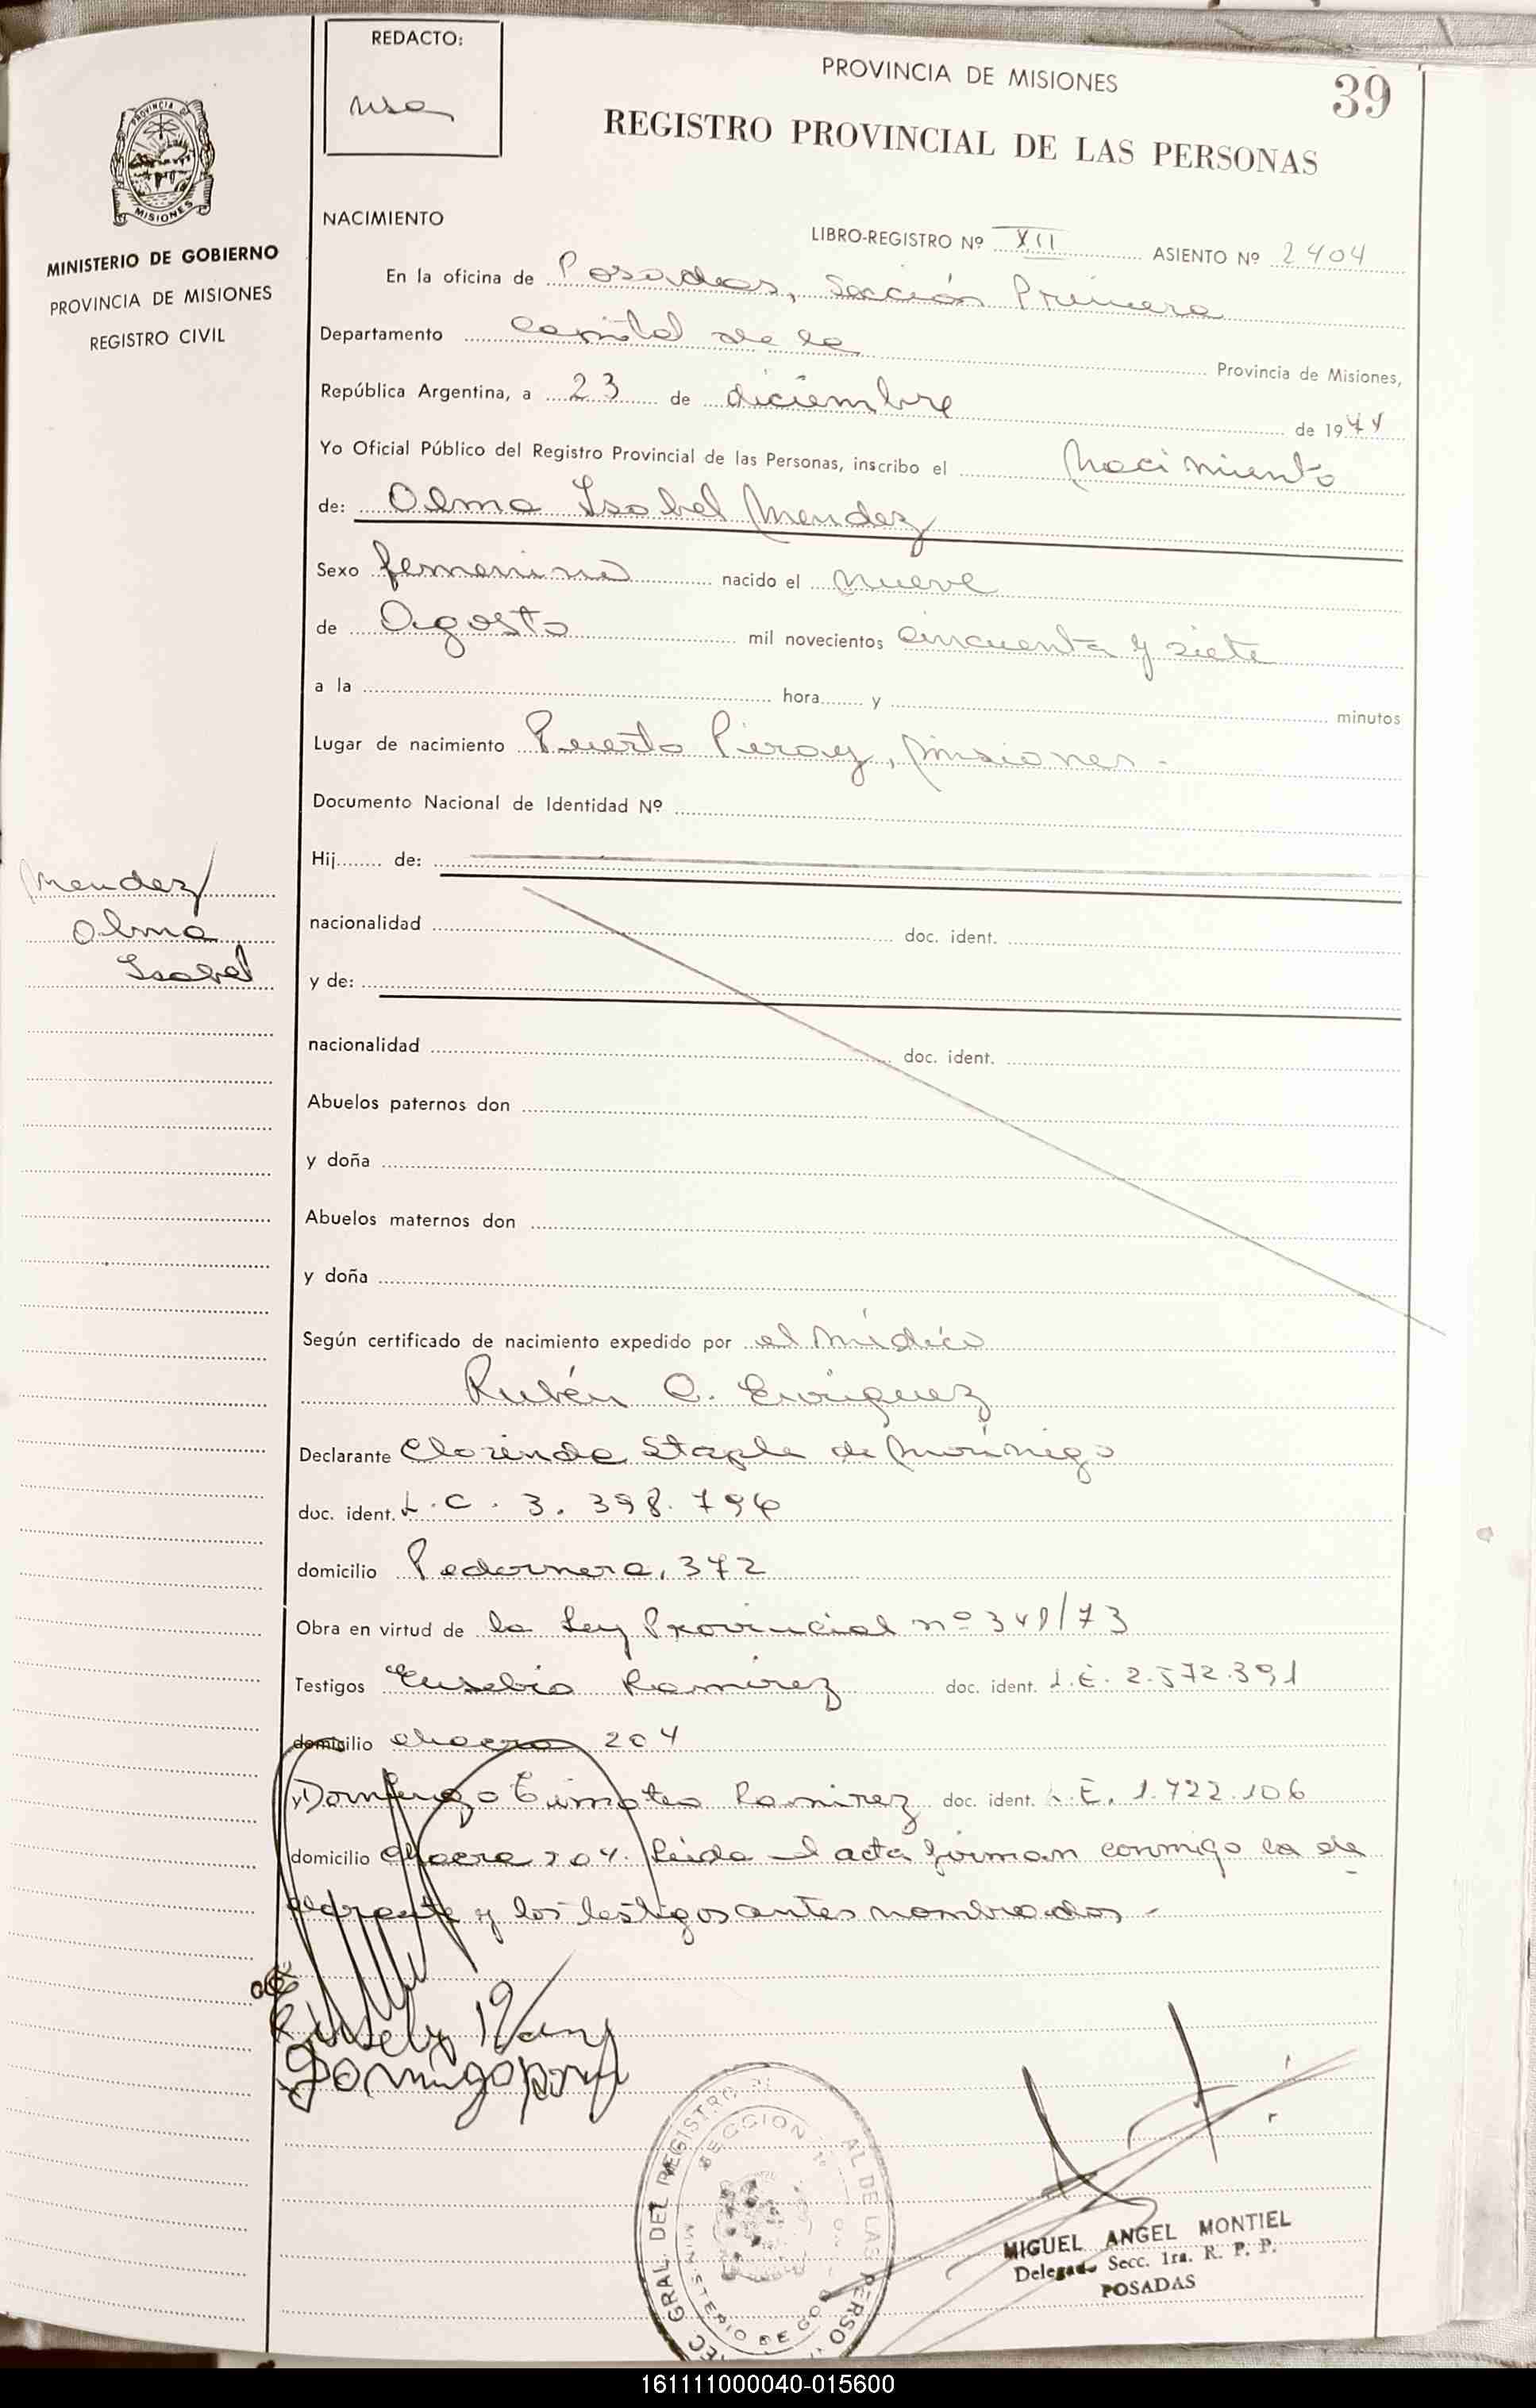 REDACTO:
PROVINCIA DE MISIONES
39
REGISTRO PROVINCIAL DE LAS PERSONAS
PROVINCIA DE
MISIONES
MINISTERIO DE GOBIERNO
PROVINCIA DE MISIONES
REGISTRO CIVIL
NACIMIENTO
LIBRO-REGISTRO Nº XII ASIENTO Nº 2404
En la oficina de Posadas, Sección Primera
Departamento Capital de la Provincia de Misiones,
República Argentina, a 23 de diciembre de 1974
Yo Oficial Público del Registro Provincial de las Personas, inscribo el Nacimiento
de: Olma Isabel Mendez
Sexo femenino nacido el nueve
de Agosto mil novecientos cincuenta y siete
a la hora y minutos
Lugar de nacimiento Puerto Piray, Misiones.
Documento Nacional de Identidad Nº
Hij de:
Mendez
Olma
Isabel
nacionalidad doc. ident.
y de:
nacionalidad doc. ident.
Abuelos paternos don
y doña
Abuelos maternos don
y doña
Según certificado de nacimiento expedido por el Médico
Rubén C. Enriquez
Declarante Clorinda Staple de Morinigo
doc. ident. L.C. 3.398.796
domicilio Pedernera, 372
Obra en virtud de la Ley Provincial nº 341/73
Testigos Eusebio Ramirez doc. ident. L.E. 2.572.391
domicilio chacra 204
y Domingo Timoteo Ramirez doc. ident. L.E. 1.722.106
domicilio chacra 204. Leida el acta firman conmigo la de
clarante y los testigos antes nombrados -
MIGUEL ANGEL MONTIEL
Delegado Secc. 1ra. R. P. P.
POSADAS
161111000040-015600